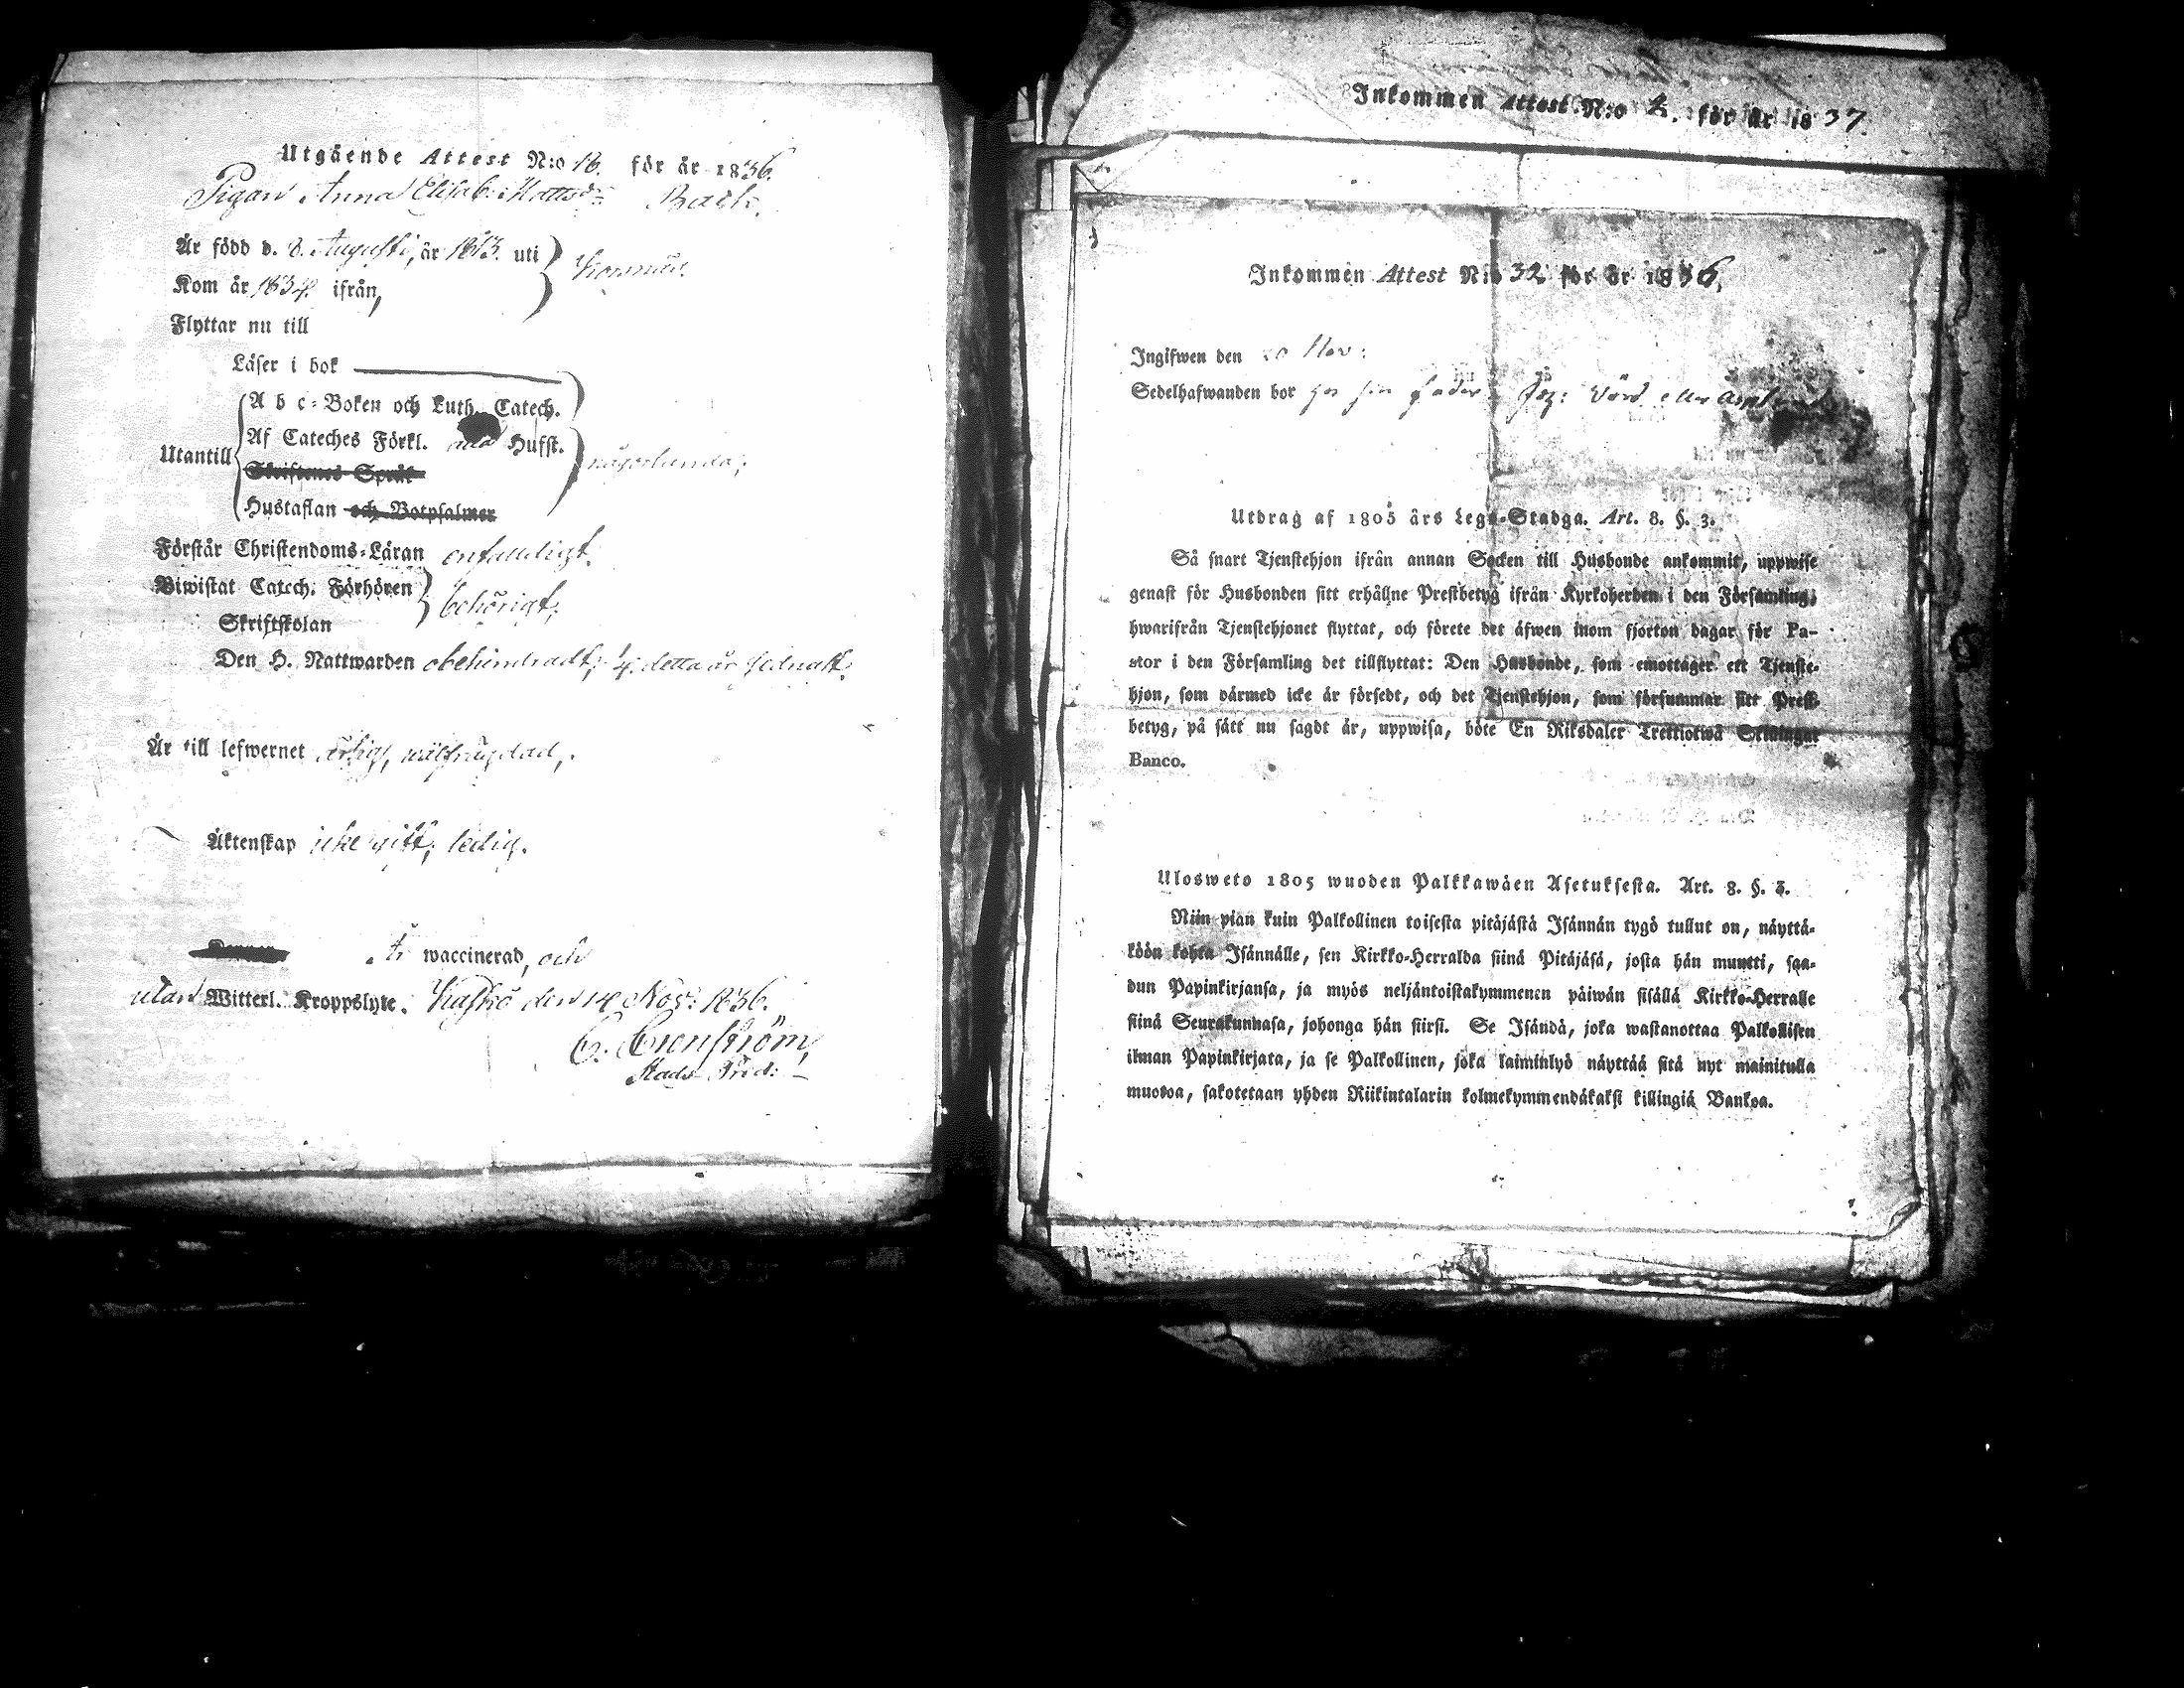 Utgående Attest N:o 18. för år 1836.
Pigan Anna Elisab. Mattsdr Back.
Är född d. 8. Augusti, år 1813. uti
Kom år 1834. ifrån,
Korsnäs.
Flyttar nu till
Läser i bok
A b c-Boken och Luth. Catech.
Af Cateches Förkl. Hufst.
Utantill
någorlunda;
Skriftenes Språk
Hustaflan och Botpsalmer
Förstår Christendoms-Läran enfaldigt.
Biwistat Catech. Förhören
behörigt;
Skriftskolan
Den H. Nattwarden obehindradt; detta år sednast.
Är till lefwernet ärlig, wälfrägdad,.
Äktenskap icke gift, ledig.
Är waccinerad, och
utan Witterl. Kroppslyte. Kaskö den 14 Nov: 1836.
C. Cronström,
Stads-Pred:
Inkommen Attest N:o 2. för år 1837.
Inkommen Attest N:o 32 för år 1836,
Ingifwen den 20 Nov:
Sedelhafwanden bor hos sin fader
Utdrag af 1805 års Lego-Stadga. Art. 8. §. 3.
Så snart Tjenstehjon ifrån annan Socken till Husbonde ankommit, uppwise
genast för Husbonden sitt erhållne Prestbetyg ifrån Kyrkoherden i den Församling,
hwarifrån Tjenstehjonet flyttat, och förete det äfwen inom fjorton dagar för Pa-
stor i den Församling det tillflyttat: Den Husbonde, som emottager ett Tjenste-
hjon, som därmed icke är försedt, och det Tjenstehjon, som försummar sitt Prest-
betyg, på sätt nu sagdt är, uppwisa, böte En Riksdaler Trettiotwå Skillingar
Banco.
Ulosweto 1805 wuoden Palkkawäen Asetuksesta. Art. 8. §. 3.
Niin pian kuin Palkollinen toisesta pitäjästä Isännän tygö tullut on, näyttä-
köön kohta Isännälle, sen Kirkko-Herralda siinä Pitäjäsä, josta hän muutti, saa-
dun Papinkirjansa, ja myös neljäntoistakymmenen päiwän sisällä Kirkko-Herralle
siinä Seurakunnasa, johonga hän siirsi. Se Isändä, joka wastanottaa Palkollisen
ilman Papinkirjata, ja se Palkollinen, joka laiminlyö näyttää sitä nyt mainitulla
muotoa, sakotetaan yhden Riikintalarin kolmekymmendäkaksi killingiä Bankoa.